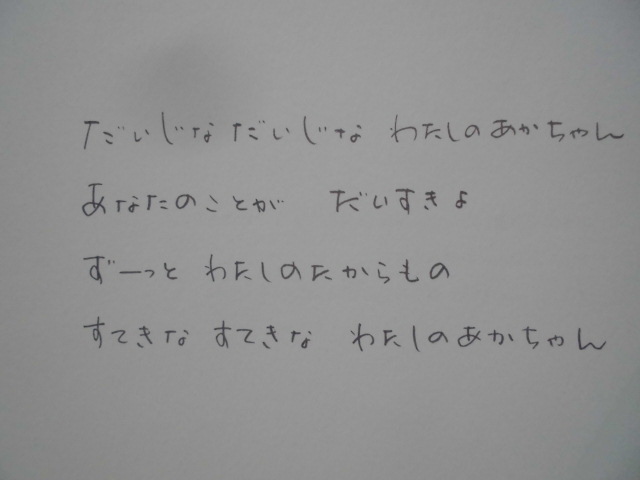 だいじな だいじな わたしのあかちゃん
あなたのことが だいすきよ
ずーっと わたしのたからもの
すてきな すてきな わたしのあかちゃん